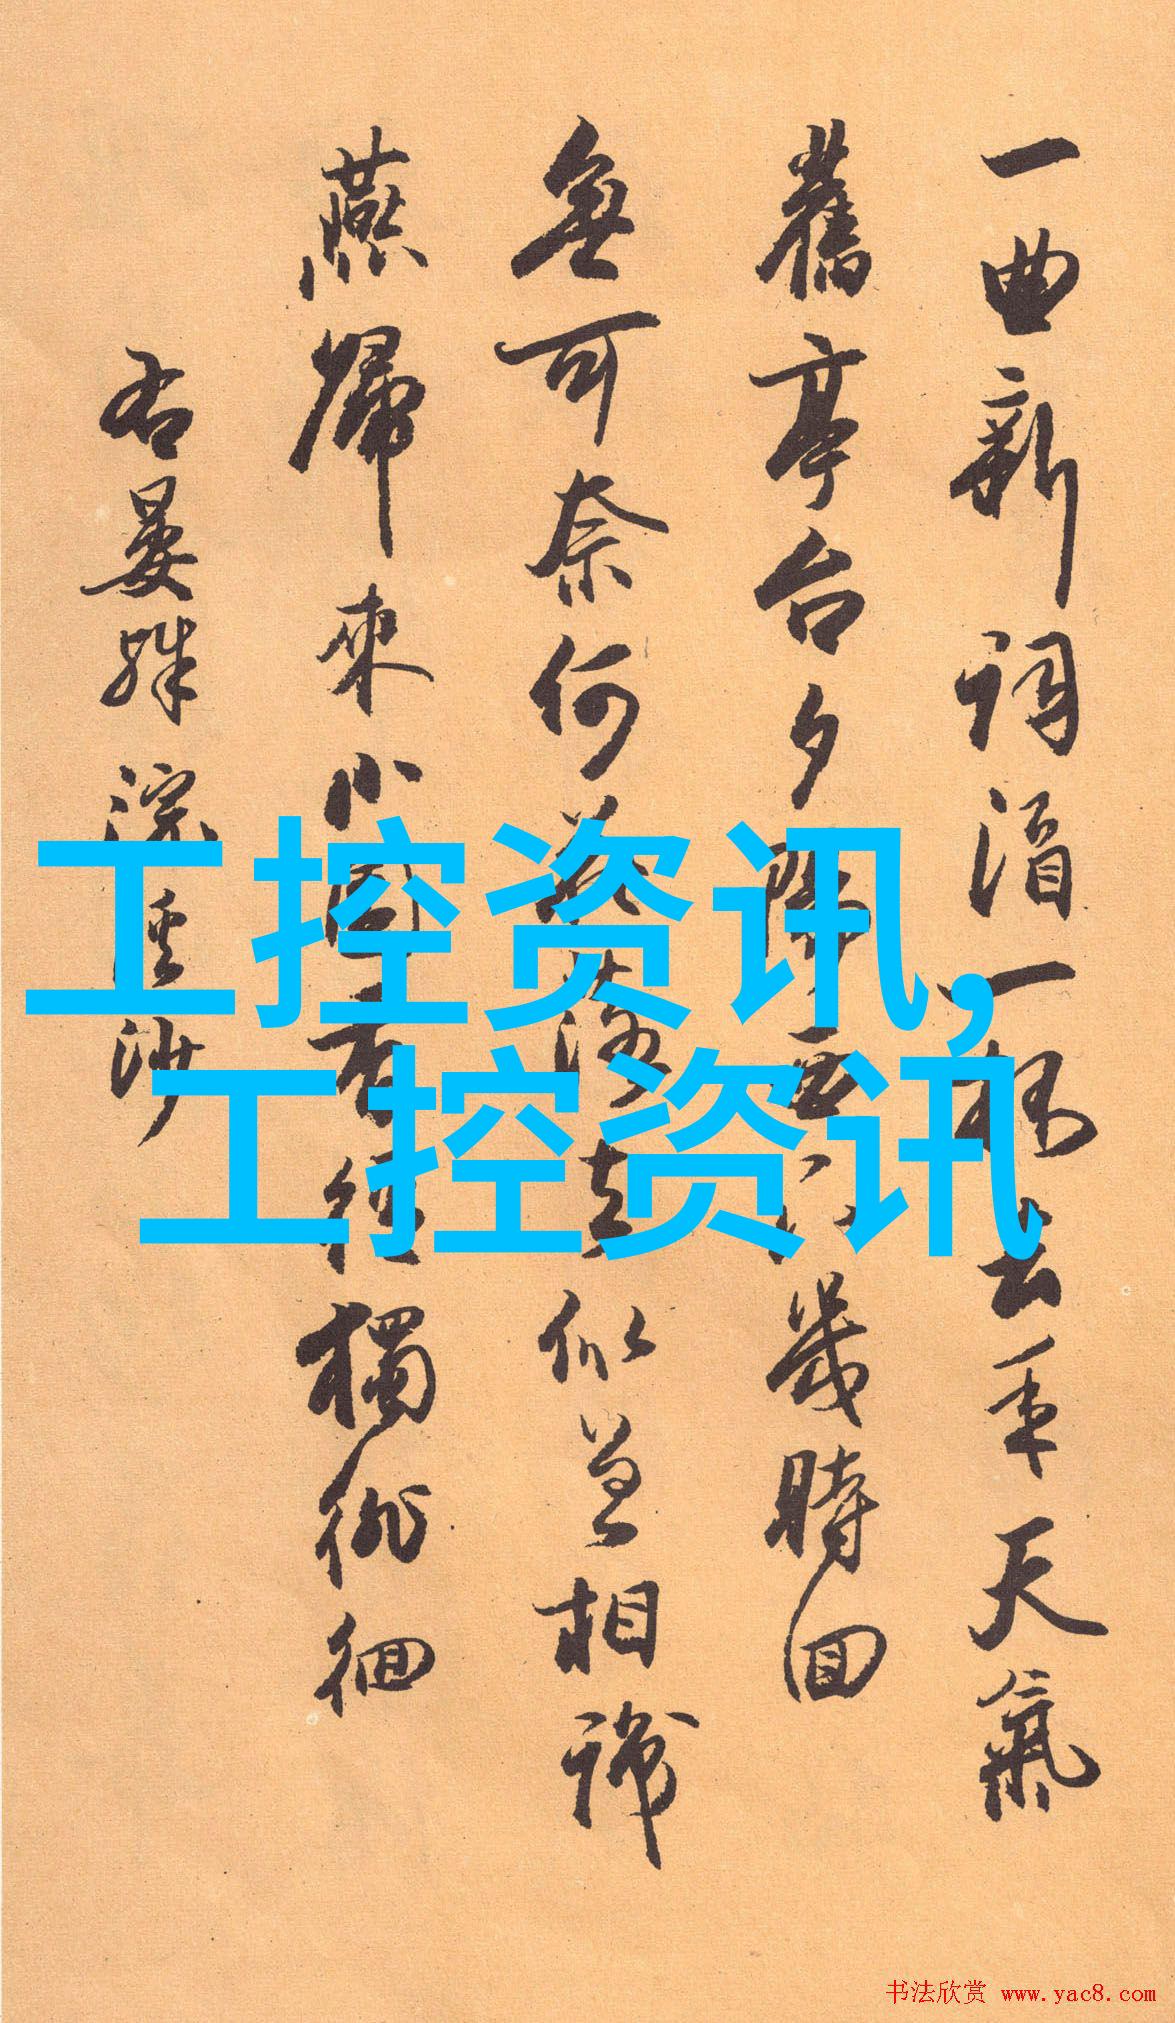 一曲新詞酒一杯去年天氣
舊亭台夕陽西下幾時回
無可奈何花落去似曾相識
燕歸來小園香徑獨徘徊
右晏殊浣溪沙
工控资讯,
工控资讯
书法欣赏 www.yac8.com